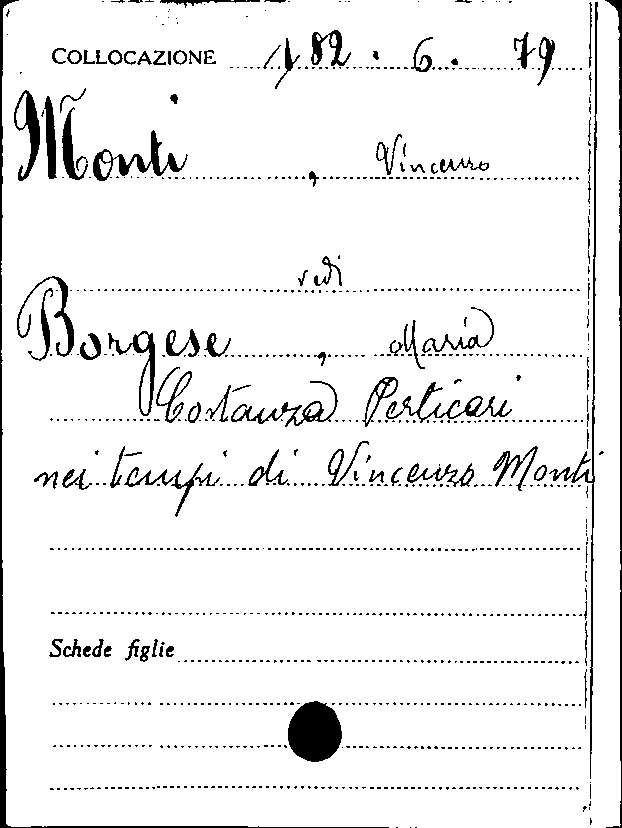 COLLOCAZIONE 182.6.79
Monti, Vincenzo
vedi
Borgese, Maria
Costanza Perticari
nei tempi di Vincenzo Monti
Schede figlie